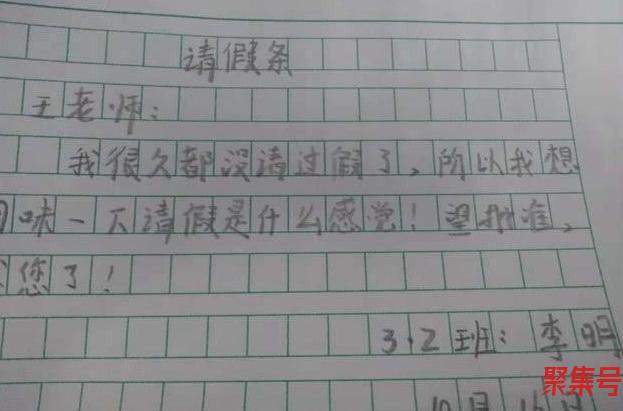 请假条
王老师：
我很久都没请过假了，所以我想
味一下请假是什么感觉！望批准，
您了！
3.2班：李明
10月16日
聚集号